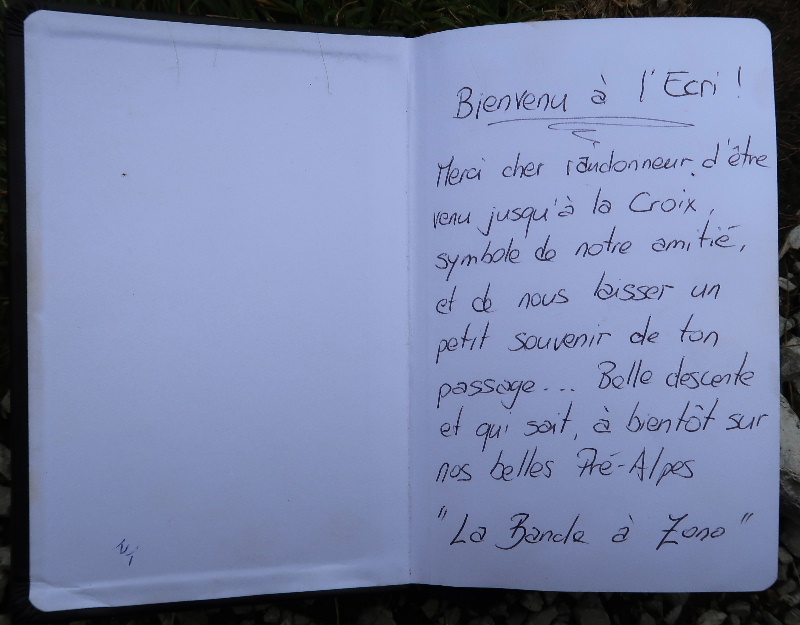 Bienvenu à l'Ecri !
Merci cher randonneur d'être
venu jusqu'à la Croix,
symbole de notre amitié,
et de nous laisser un
petit souvenir de ton
passage... Belle descente
et qui sait, à bientôt sur
nos belles Pré-Alpes
"La Bande à Zono"